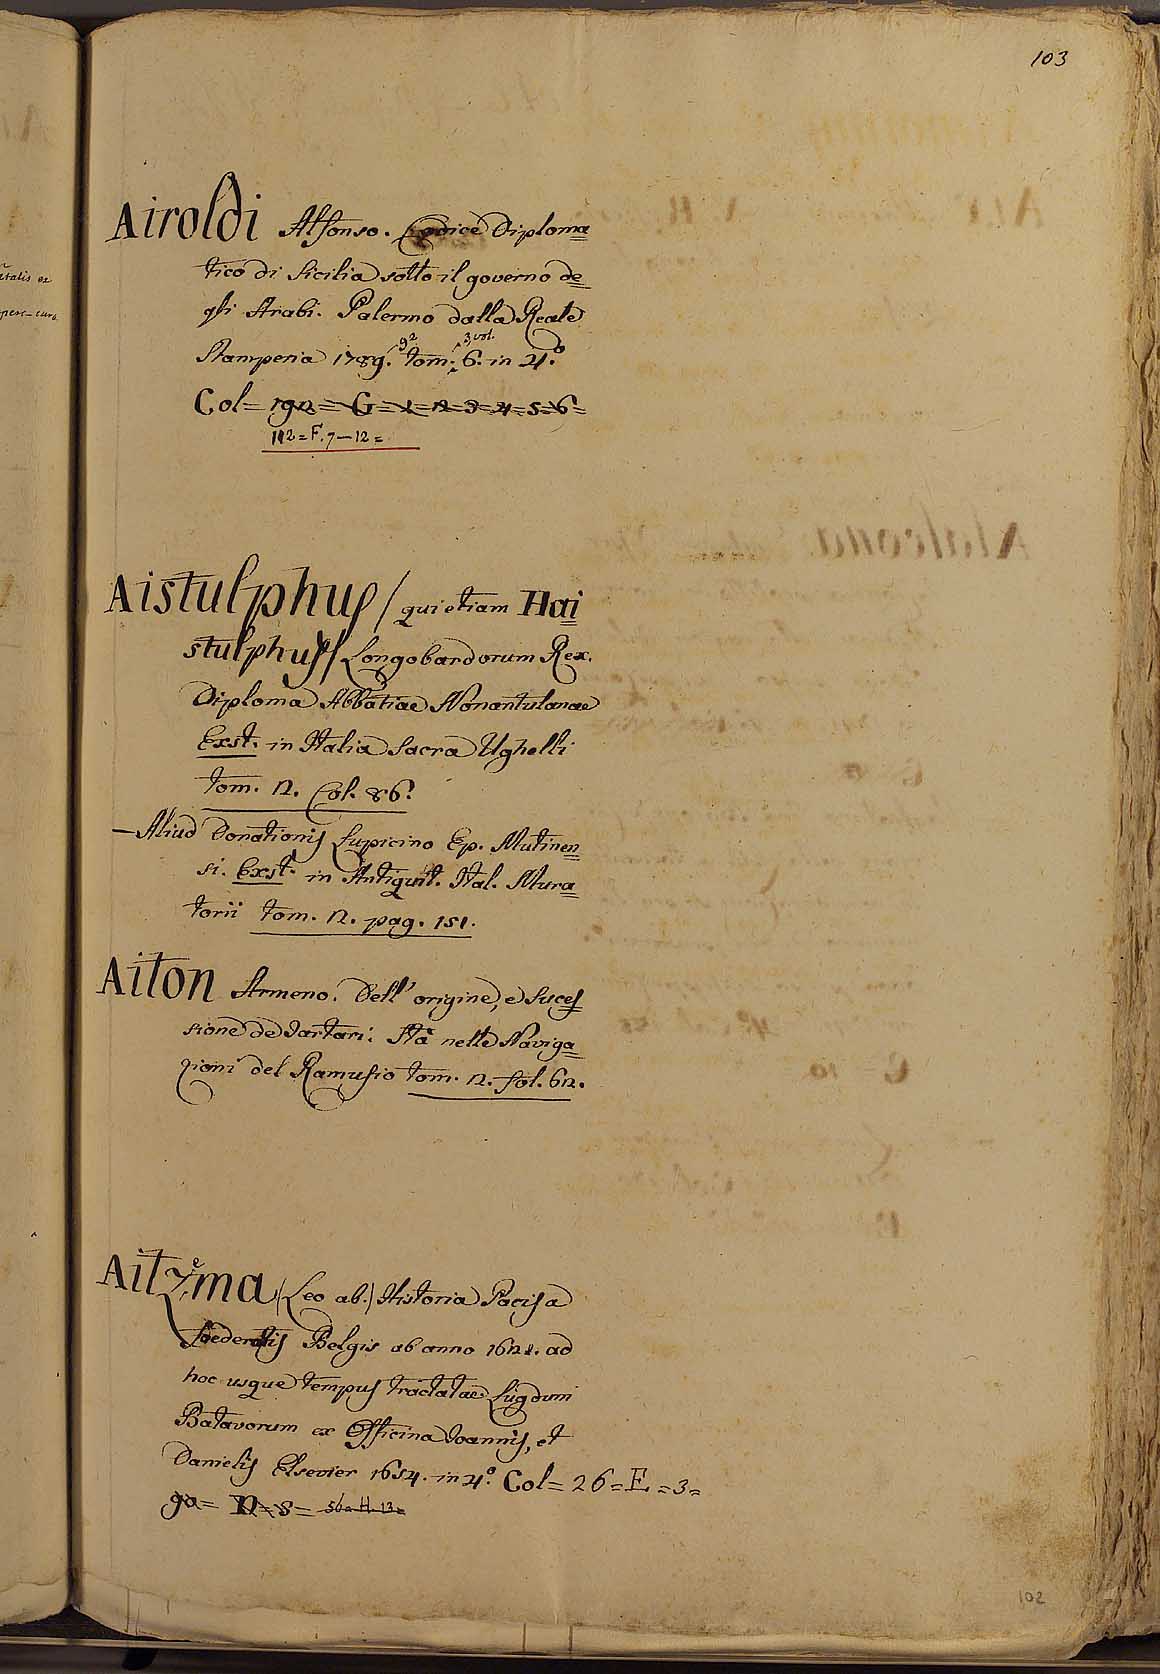 103
Airoldi Alfonso. Codice Diploma=
tico di Sicilia sotto il governo de=
gli Arabi. Palermo dalla Reale
92 3 vol.
Stamperia 1789. tom: 6. in 4.º
Col= 192= G= 1= 2= 3= 4= 5= 6=
112=F.7—12=
Aistulphus / qui etiam Hai=
stulphus / Longobardorum Rex.
Diploma Abbatiae Nonantulanae
Exst. in Italia Sacra Ughelli
tom. 2. Col. 86.
—Aliud Donationis Lupicino Ep. Mutinen=
si. Exst. in Antiquit. Ital. Mura=
torii tom. 2. pag. 151.
Aiton Armeno. Dell' origine, e Suces=
sione de Tartari: Stà nelle Naviga=
zioni del Ramusio tom. 2. fol. 62.
Aitzema (Leo ab.) Historia Pacis a
foederatis Belgis ab anno 1621. ad
hoc usque tempus tractatae. Lugduni
Batavorum ex Officina Ioannis, et
Danielis Elsevier 1654. in 4.º Col= 26=E=3=
= 56=H.13=
102